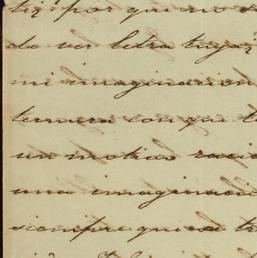 por que no
da ver letra tuya
mi imaginacion
ternura con que
un motivo
una imaginacio
siempre